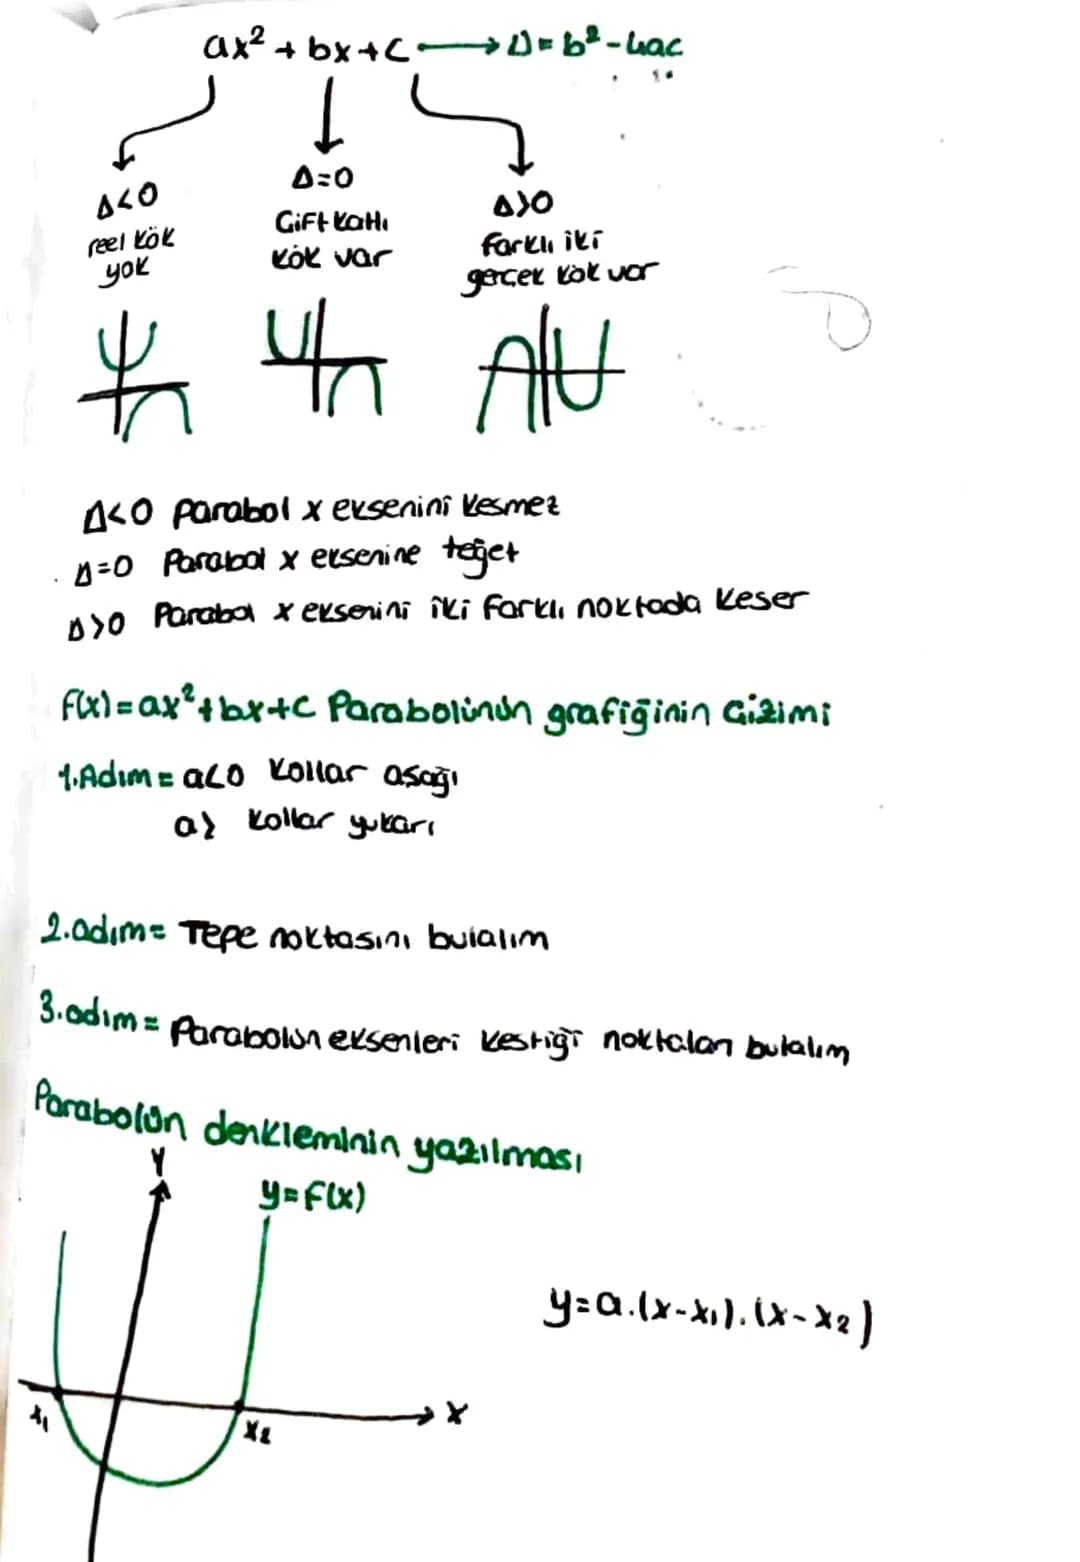 ax² + bx + c → Δ = b² - 4ac
Δ<0 Δ=0 Δ>0
reel kök yok
Çift katlı kök var
farklı iki gerçek kök var
Δ<0 parabol x eksenini kesmez
Δ=0 Parabol x eksenine teğet
Δ>0 Parabol x eksenini iki farklı noktada keser
f(x) = ax² + bx + c Parabolünün grafiğinin Çizimi
1.Adım = a<0 Kollar aşağı
a> kollar yukarı
2.adım = Tepe noktasını bulalım
3.adım = Parabolün eksenleri kestiği noktaları bulalım
Parabolün denkleminin yazılması
y
y=f(x)
y=a.(x-x₁).(x-x₂)
x₁ x₂ x